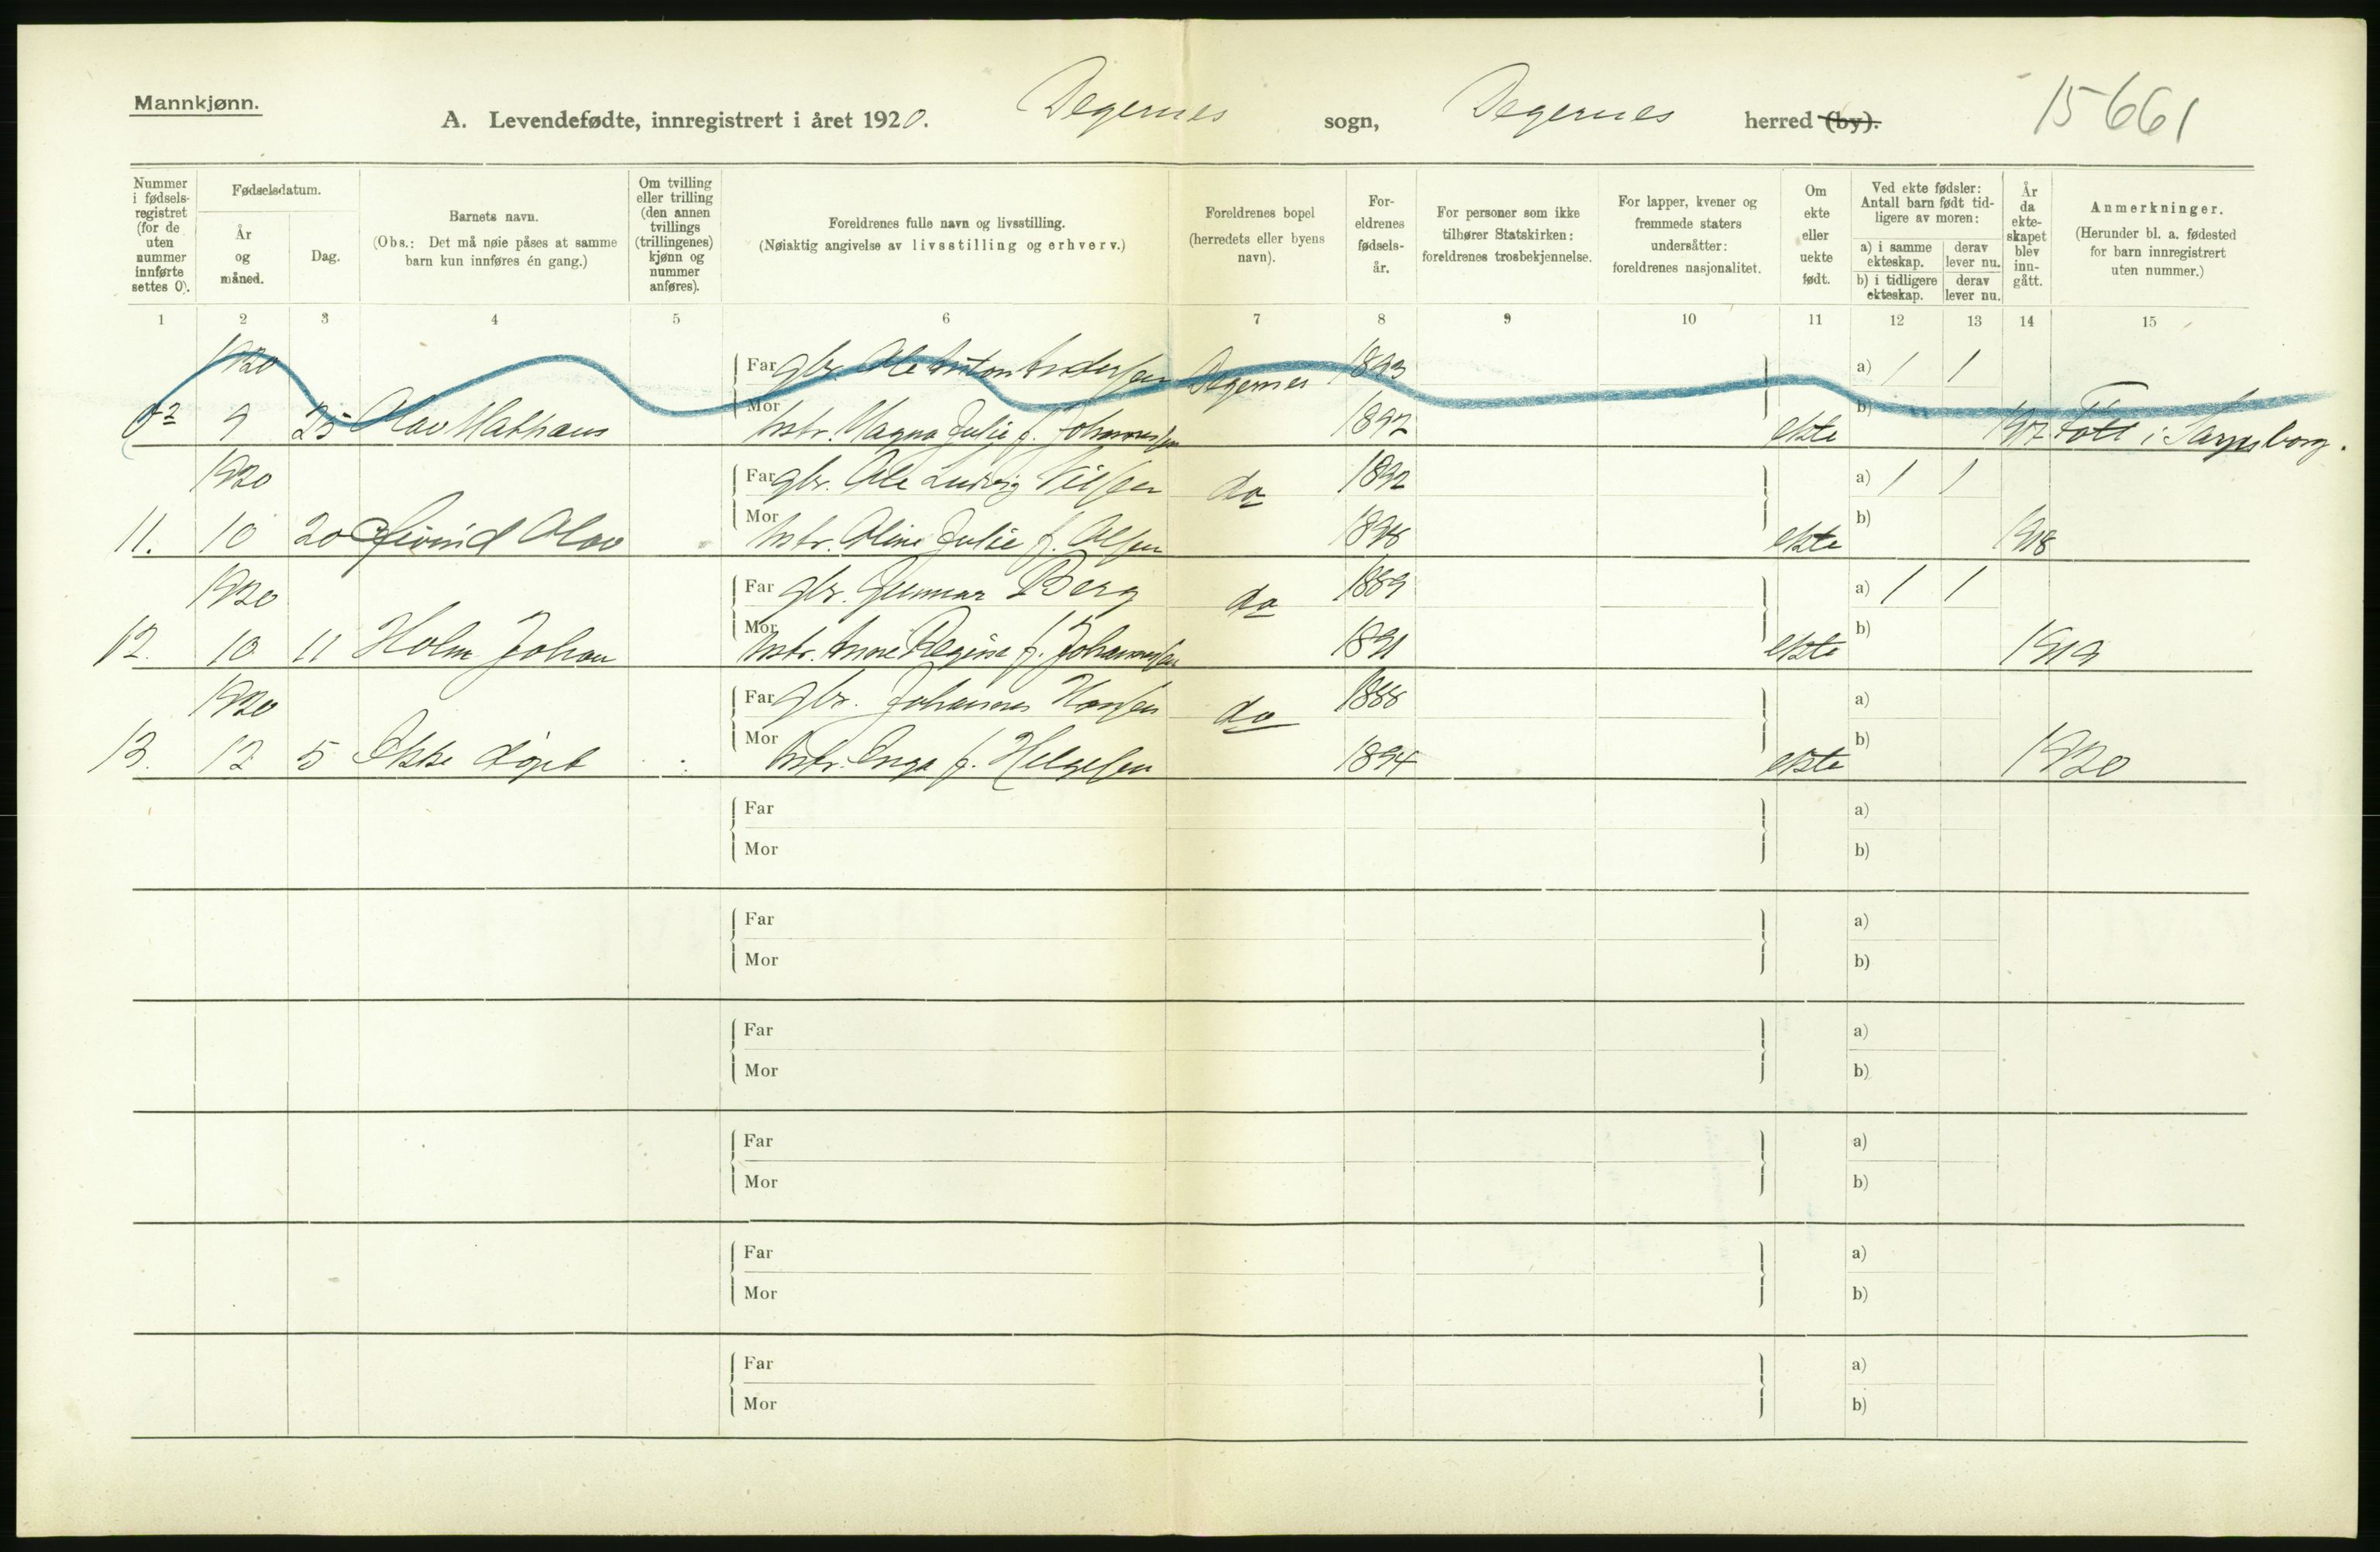 Mannkjønn.
A. Levendefødte, innregistrert i året 1920. Degernes sogn, Degernes herred (by). 15661
Nummer i fødsels-registret (for de uten nummer innførte settes 0).
Fødselsdatum.
År og måned.
Dag.
Barnets navn.
(Obs.: Det må nøie påses at samme barn kun innføres én gang.)
Om tvilling eller trilling (den annen tvillings (trillingenes) kjønn og nummer anføres).
Foreldrenes fulle navn og livsstilling.
(Nøiaktig angivelse av livsstilling og erhverv.)
Foreldrenes bopel (herredets eller byens navn).
For-eldrenes fødsels-år.
For personer som ikke tilhører Statskirken: foreldrenes trosbekjennelse.
For lapper, kvener og fremmede staters undersåtter: foreldrenes nasjonalitet.
Om ekte eller uekte født.
Ved ekte fødsler: Antall barn født tid-ligere av moren:
a) i samme ekteskap. derav lever nu.
b) i tidligere ekteskap. derav lever nu.
År da ekte-skapet blev inn-gått.
Anmerkninger.
(Herunder bl. a. fødested for barn innregistrert uten nummer.)
1 2 3 4 5 6 7 8 9 10 11 12 13 14 15
1920 Far gbr. Ole Anton Andersen Degernes 1893 a) 1 1
02 9 25 Olav Mathæus Mor hstr. Magna Julie f. Johannessen 1892 ekte b) 1917 Født i Sarpsborg.
1920 Far gbr. Ole Ludvig Nilsen do 1892 a) 1 1
11. 10 20 Eivind Olav Mor hstr. Oline Julie f. Olsen 1898 ekte b) 1918
1920 Far gbr. Gunnar Berg do 1889 a) 1 1
12. 10 11 Holm Johan Mor hstr. Anne Regine f. Johannessen 1891 ekte b) 1919
1920 Far gbr. Johannes Hansen do 1888 a)
13. 12 5 Ikke døpt Mor hstr. Inga f. Helgesen 1894 ekte b) 1920
Far a)
Mor b)
Far a)
Mor b)
Far a)
Mor b)
Far a)
Mor b)
Far a)
Mor b)
Far a)
Mor b)